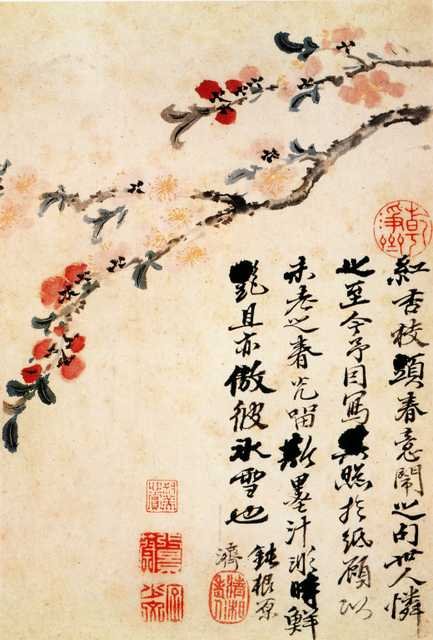 紅杏枝頭春意鬧之句世人憐
之至今予因寫其照於紙顧以
未老之春光留墨汁時鮮
艷且亦傲彼冰雪也
鈍根原
濟
清湘老人